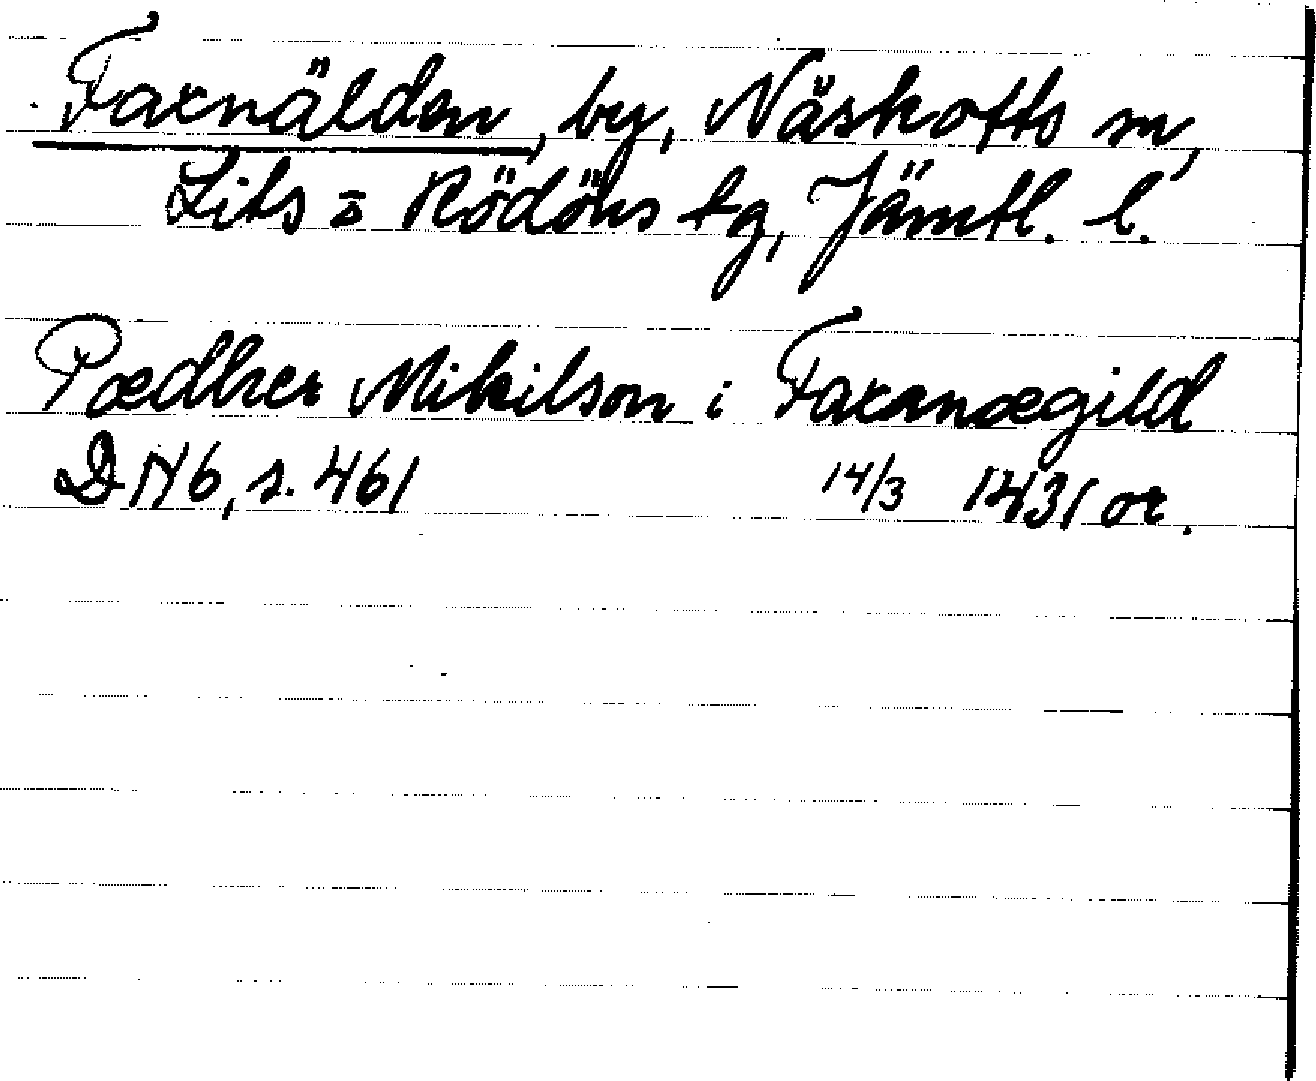 Faxnälden, by, Näskotts sn,
Lits o Rödöns tg, Jämtl. l.
Pædher Mikilson i Faxanægild
DN 6, s. 461 14/3 1431 or.